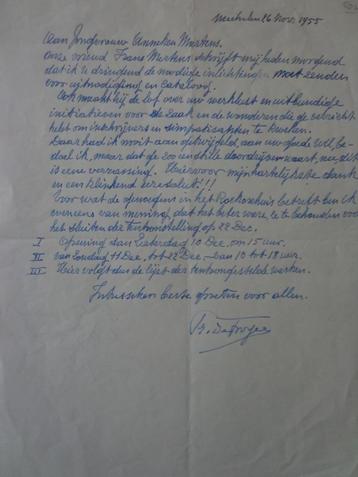 Mechelen 26 Nov. 1955
Aan Jonfvrouw Anneken Mertens.
Onze vriend Frans Mertens schrijft mij heden morgend
dat ik U dringend de noodige inlichtingen moet zenden
voor uitnoodiging en Cataloog.
Ook maakt hij de lof over uw werklust en uitbundige
initiatieven voor de Zaak en de wonderen die ge verricht
hebt om inschrijvers en simpatisanten te kweken.
Daar had ik nooit aan getwijfeld, aan uw goede wil, be-
doel ik, maar dat ge zoo en stille doordrijver waart, nee dit
is eene verrassing. Hiervoor mijn hartelijkste dank
en een klinkend eeresaluut!!!
Voor wat de openingsuren in het Rockoxhuis betreft ben ik
eveneens van mening, dat het beter ware te behouden voor
het sluiten der Tentoonstelling op 22 Dec.
I Opening dan Zaterdag 10 Dec. om 15 uur.
II van Zondag 11 Dec. tot 22 Dec - van 10 tot 18 uur.
III Hier volgt dan de lijst der tentoongestelde werken.
Intusschen beste groeten voor allen.